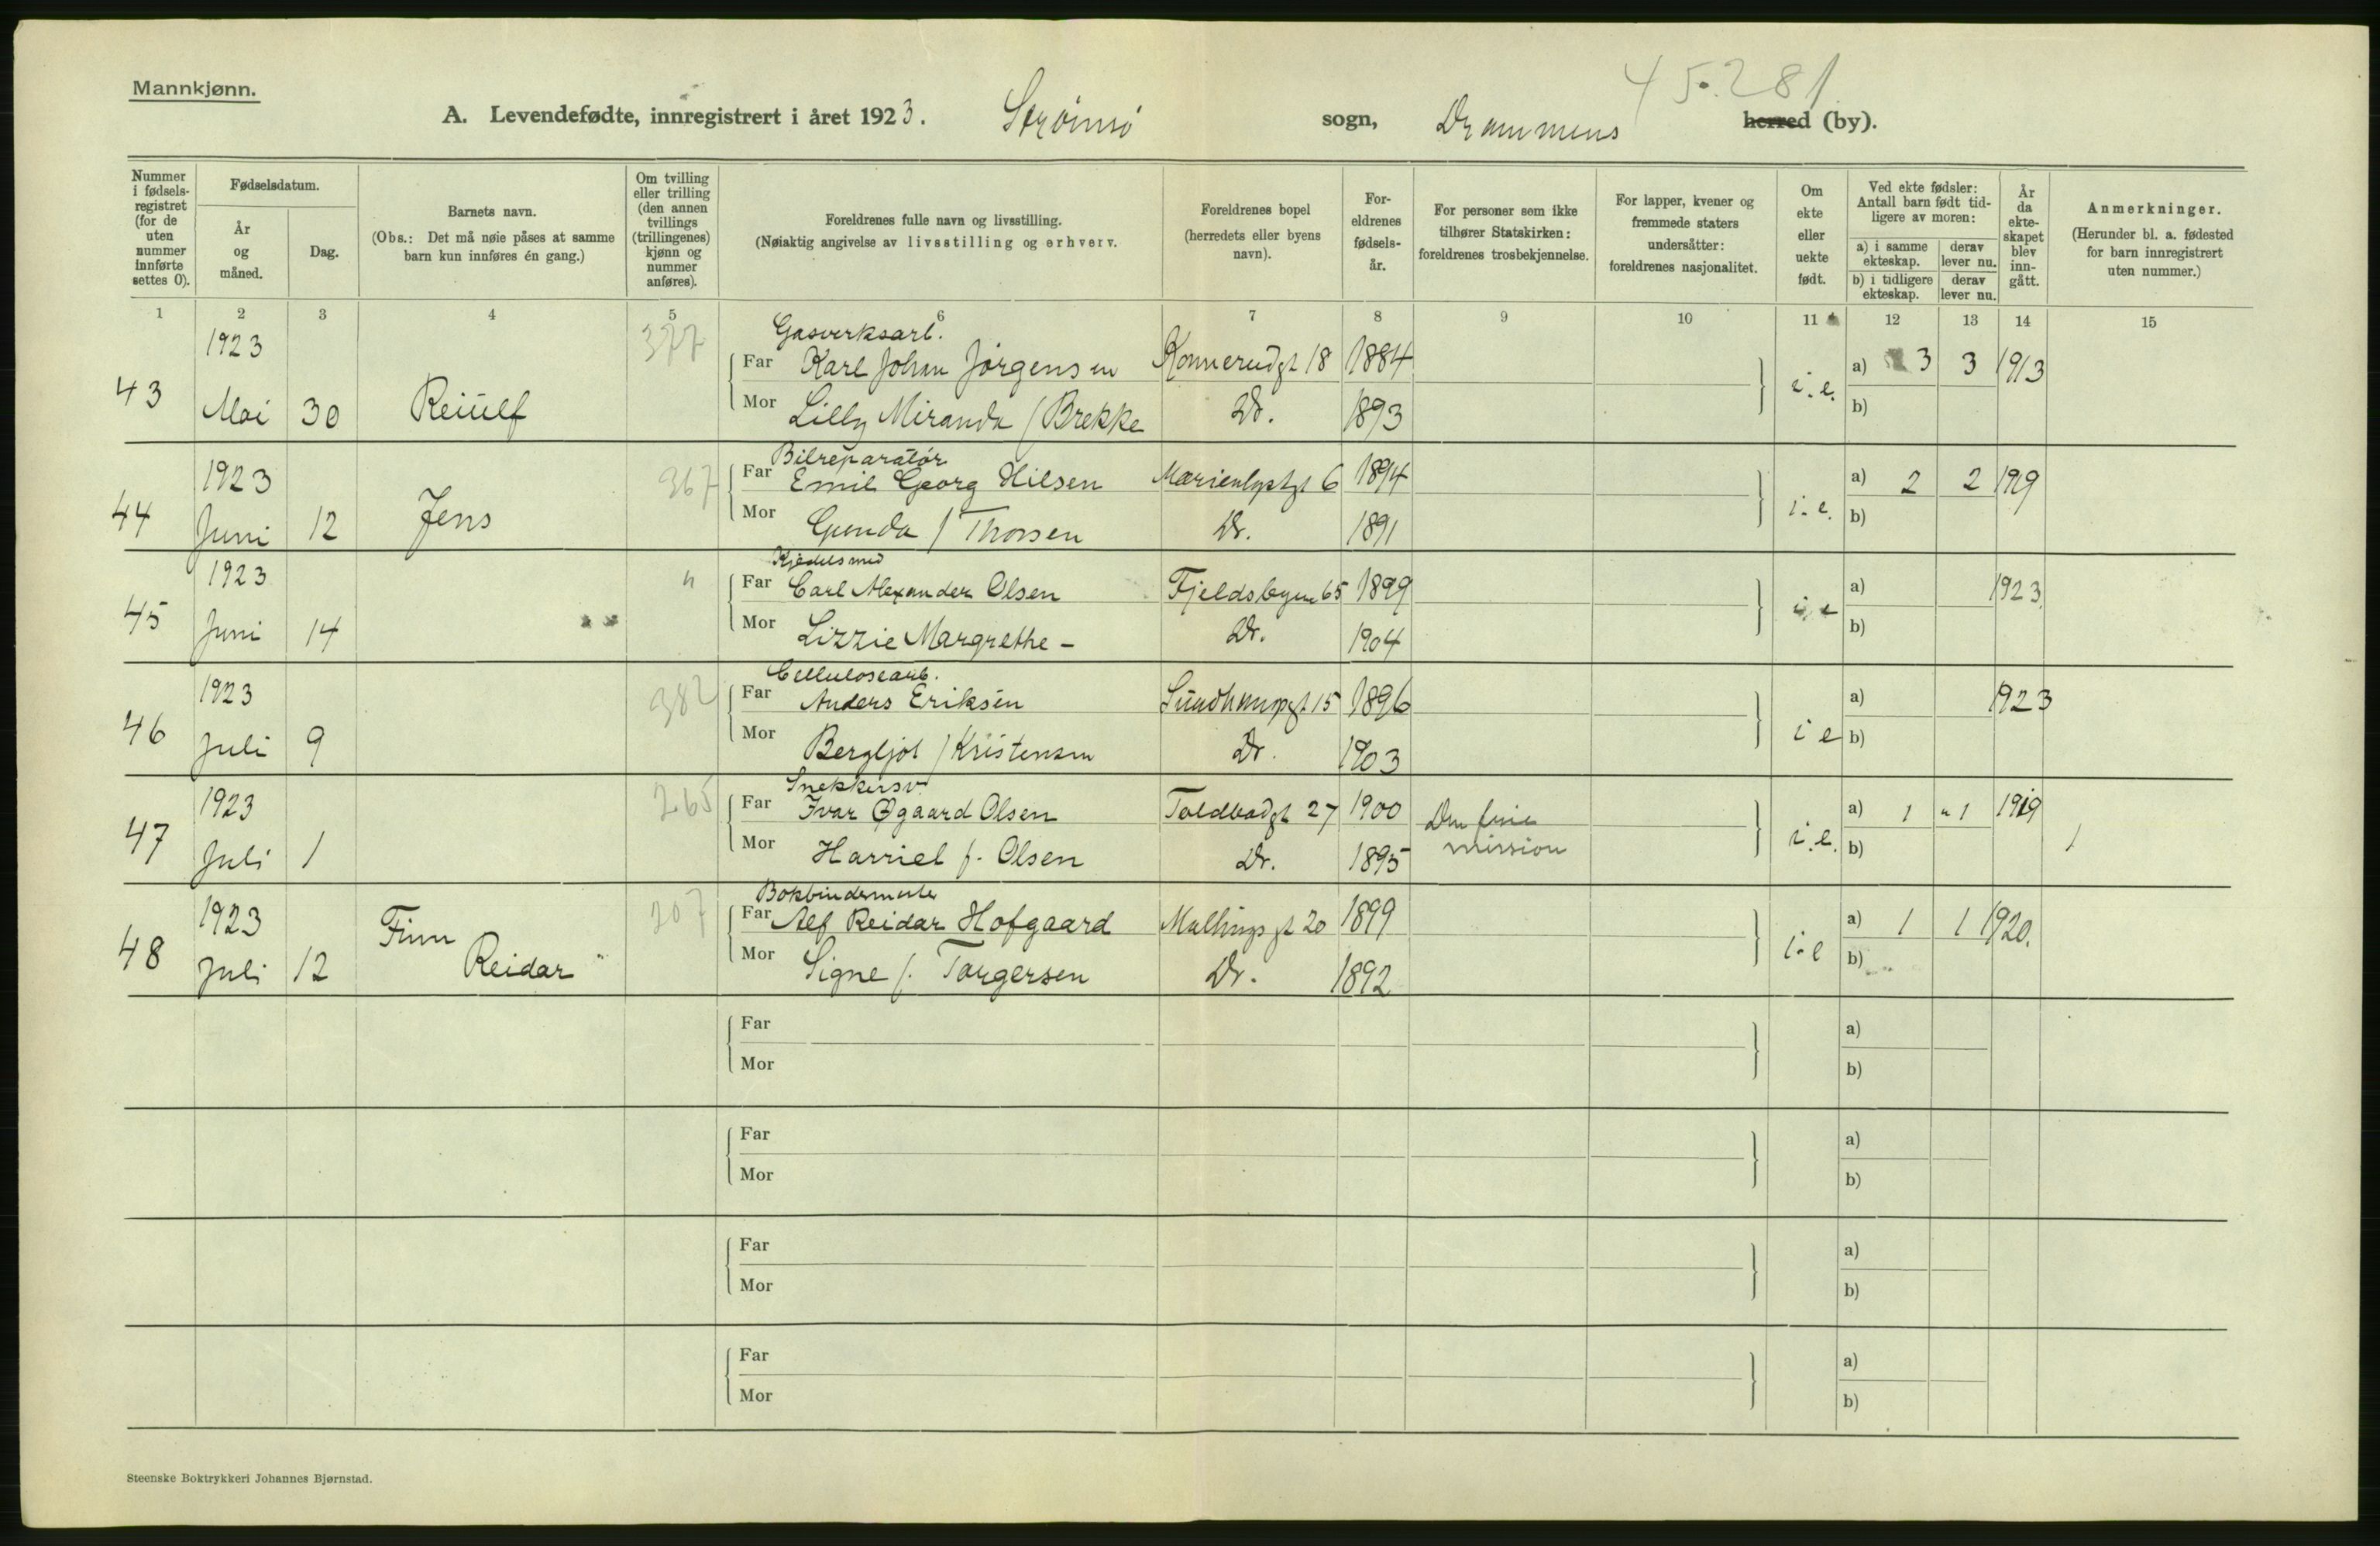 Mannkjønn.
45.281
A. Levendefødte, innregistrert i året 1923. Strømsø sogn, Drammens herred (by).
Nummer i fødsels-registret (for de uten nummer innførte settes 0).
Fødselsdatum.
År og måned.
Dag.
Barnets navn.
(Obs.: Det må nøie påses at samme barn kun innføres én gang.)
Om tvilling eller trilling (den annen tvillings (trillingenes) kjønn og nummer anføres).
Foreldrenes fulle navn og livsstilling.
(Nøiaktig angivelse av livsstilling og erhverv.
Foreldrenes bopel (herredets eller byens navn).
For-eldrenes fødsels-år.
For personer som ikke tilhører Statskirken: foreldrenes trosbekjennelse.
For lapper, kvener og fremmede staters undersåtter: foreldrenes nasjonalitet.
Om ekte eller uekte født.
Ved ekte fødsler: Antall barn født tid-ligere av moren:
a) i samme ekteskap.
derav lever nu.
b) i tidligere ekteskap.
derav lever nu.
År da ekte-skapet blev inn-gått.
Anmerkninger.
(Herunder bl. a. fødested for barn innregistrert uten nummer.)
1 2 3 4 5 6 7 8 9 10 11 12 13 14 15
Gasverksarb.
43 1923 377 Far Karl Johan Jørgensen Konnerudgt 18 1884 i.e. a) 3 3 1913
Mai 30 Reiulf Mor Lilly Miranda / Brekke Dr. 1893 b)
Bilreparatør
44 1923 Jens 367 Far Emil Georg Hilsen Marienlystgt 6 1894 i.e. a) 2 2 1919
Juni 12 Mor Gunda / Thorsen Dr. 1891 b)
Kjedelsmed
45 1923 " Far Carl Alexander Olsen 65 1899 i e a) 1923
Juni 14 Mor Lizzie Margrethe - Dr. 1904 b)
Cellulosearb.
46 1923 382 Far Anders Eriksen 15 1896 i e a) 1923
Juli 9 Mor Bergljot / Kristensen Dr. 1903 b)
Snekkersv.
47 1923 265 Far Ivar Øgaard Olsen Toldbodgt 27 1900 Den frie i.e. a) 1 1 1919
Juli 1 Mor Harriet f. Olsen Dr. 1895 mission b) 1
Bokbindermester
48 1923 Finn 207 Far Alf Reidar Hofgaard Mallingsgt 20 1899 i.e a) 1 1 1920.
Juli 12 Reidar Mor Signe f. Torgersen Dr. 1892 b)
Far a)
Mor b)
Far a)
Mor b)
Far a)
Mor b)
Far a)
Mor b)
Steenske Boktrykkeri Johannes Bjørnstad.